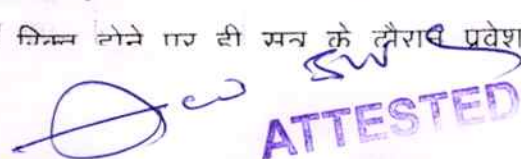 रिक्त होने पर ही सत्र के दौरान प्रवेश
ATTESTED